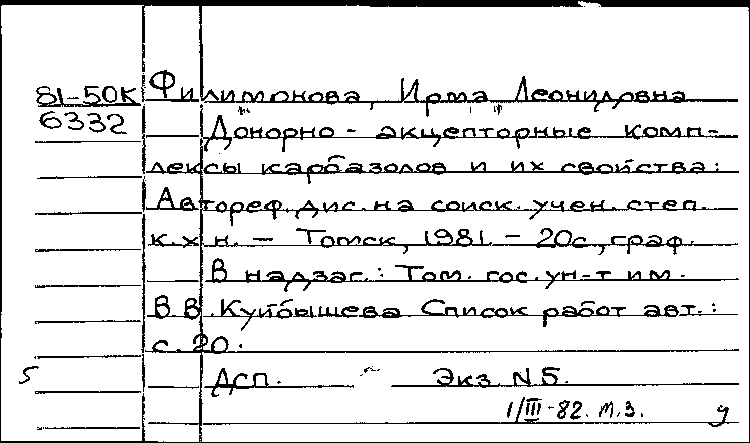 81-50К Филимонова, Ирма Леонидовна
6332 Донорно - акцепторные комп-
лексы карбазолов и их свойства:
Автореф. дис. на соиск. учен. степ.
к. х н. - Томск, 1981. - 20с, граф.
В надзаг.: Том. гос. ун-т им.
В В. Куйбышева Список работ авт.:
с. 20.
5 Дсп. Экз N5.
1/III-82. м.з. у